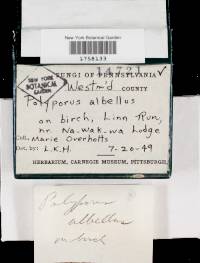 New York Botanical Garden
1758133
14721
FUNGI OF PENNSYLVANIA
NEW YORK
BOTANICAL
GARDEN
Westm'd COUNTY
Polyporus albellus
on birch, Linn Run,
nr. Na-wak-wa Lodge
Coll. Marie Overholts
Det. by: L.K.H. 7-20-49
HERBARIUM, CARNEGIE MUSEUM, PITTSBURGH
Polyporus
albellus
on birch